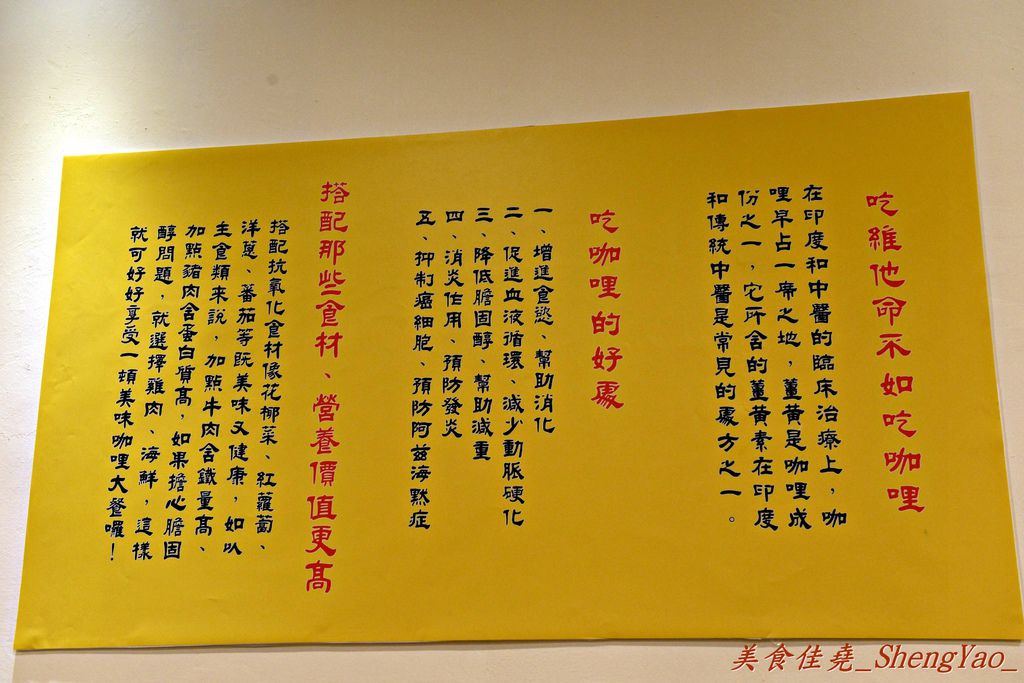 吃維他命不如吃咖哩
在印度和中醫的臨床治療上，咖
哩早占一席之地，薑黃是咖哩成
份之一，它所含的薑黃素在印度
和傳統中醫是常見的處方之一。
吃咖哩的好處
一、增進食慾、幫助消化
二、促進血液循環、減少動脈硬化
三、降低膽固醇、幫助減重
四、消炎作用、預防發炎
五、抑制癌細胞、預防阿茲海默症
搭配那些食材、營養價值更高
搭配抗氧化食材像花椰菜、紅蘿蔔、
洋蔥、蕃茄等既美味又健康，如以
主食類來說，加點牛肉含鐵量高、
加點豬肉含蛋白質高，如果擔心膽固
醇問題，就選擇雞肉、海鮮，這樣
就可好好享受一頓美味咖哩大餐囉！
美食佳堯_ShengYao_